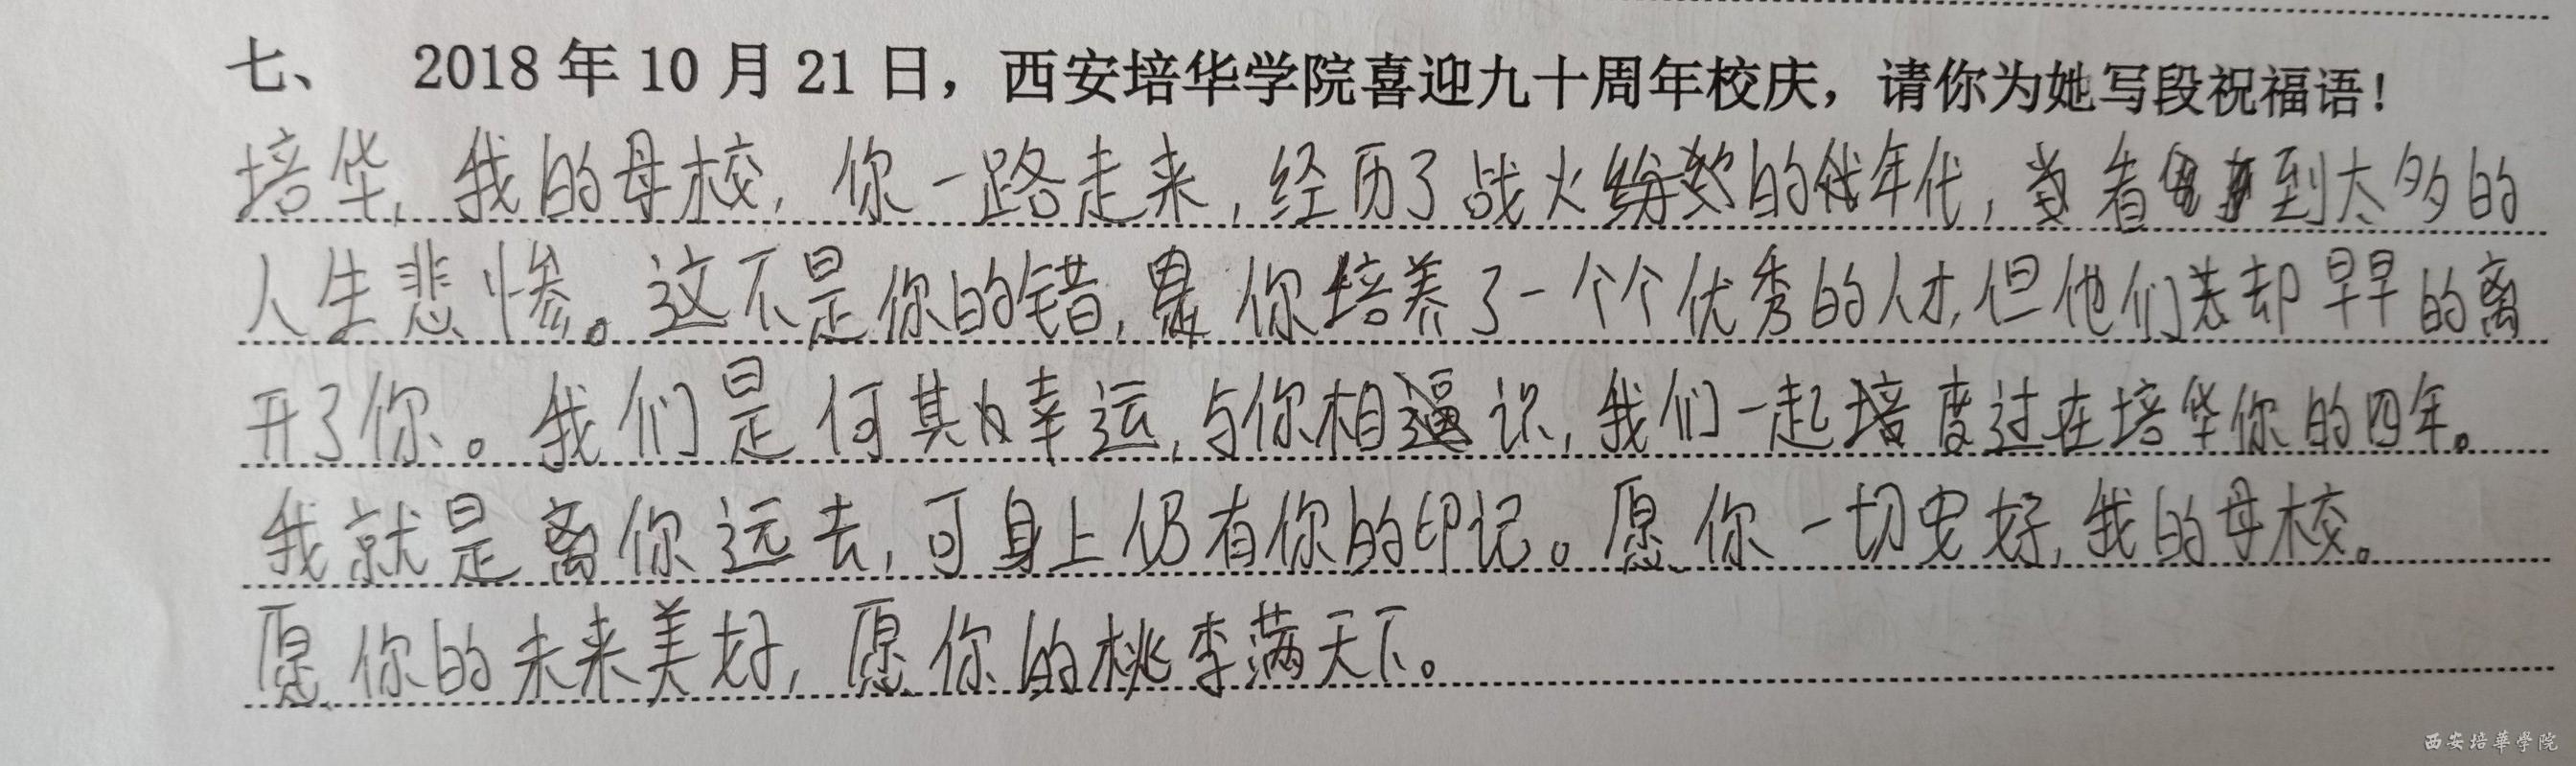 七、 2018年10月21日，西安培华学院喜迎九十周年校庆，请你为她写段祝福语！
培华，我的母校，你一路走来，经历了战火纷飞的年代，看到太多的
人生悲惨。这不是你的错，是你培养了一个个优秀的人才，但他们却早早的离
开了你。我们是何其幸运，与你相识，我们一起度过在培华你的四年。
我就是离你远去，可身上仍有你的印记。愿你一切安好，我的母校。
愿你的未来美好，愿你的桃李满天下。
西安培華學院